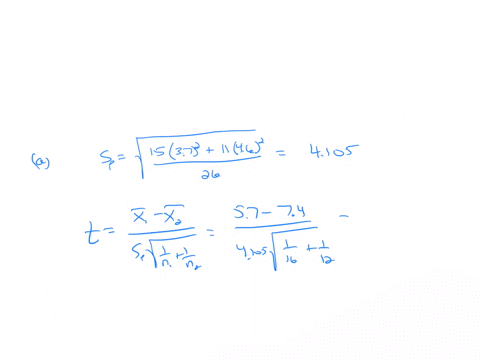 (a) Sₚ = √( (15(3.7)² + 11(4.6)²) / 26 ) = 4.105
t = (x̄₁ − x̄₂) / (Sₚ√(1/n₁ + 1/n₂)) = (5.7 − 7.4) / (4.105√(1/16 + 1/12)) =